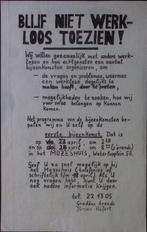 BLIJF NIET WERK-
LOOS TOEZIEN!
Wij willen gezamenlijk met andere werk-
lozen en hun echtgenoten een aantal
bijeenkomsten organiseren, om
- de vragen en problemen, waarmee
een werkloze dagelijks te
maken heeft, door te praten;
- mogelijkheden te zoeken, hoe wij
voor onze belangen op kunnen
komen.
Het programma van de bijeenkomsten be-
palen wij U zelf op de
eerste bijeenkomst. Dat is
op 23 april, om 2
en 28 april, om
in het MOZESHUIS, Waterlooplein
Geef U zo snel mogelijk op bij
het
schriftelijk april. Als U
nog vragen hebt, kunt U ook
nadere informatie krijgen.
tel. 22 13 05